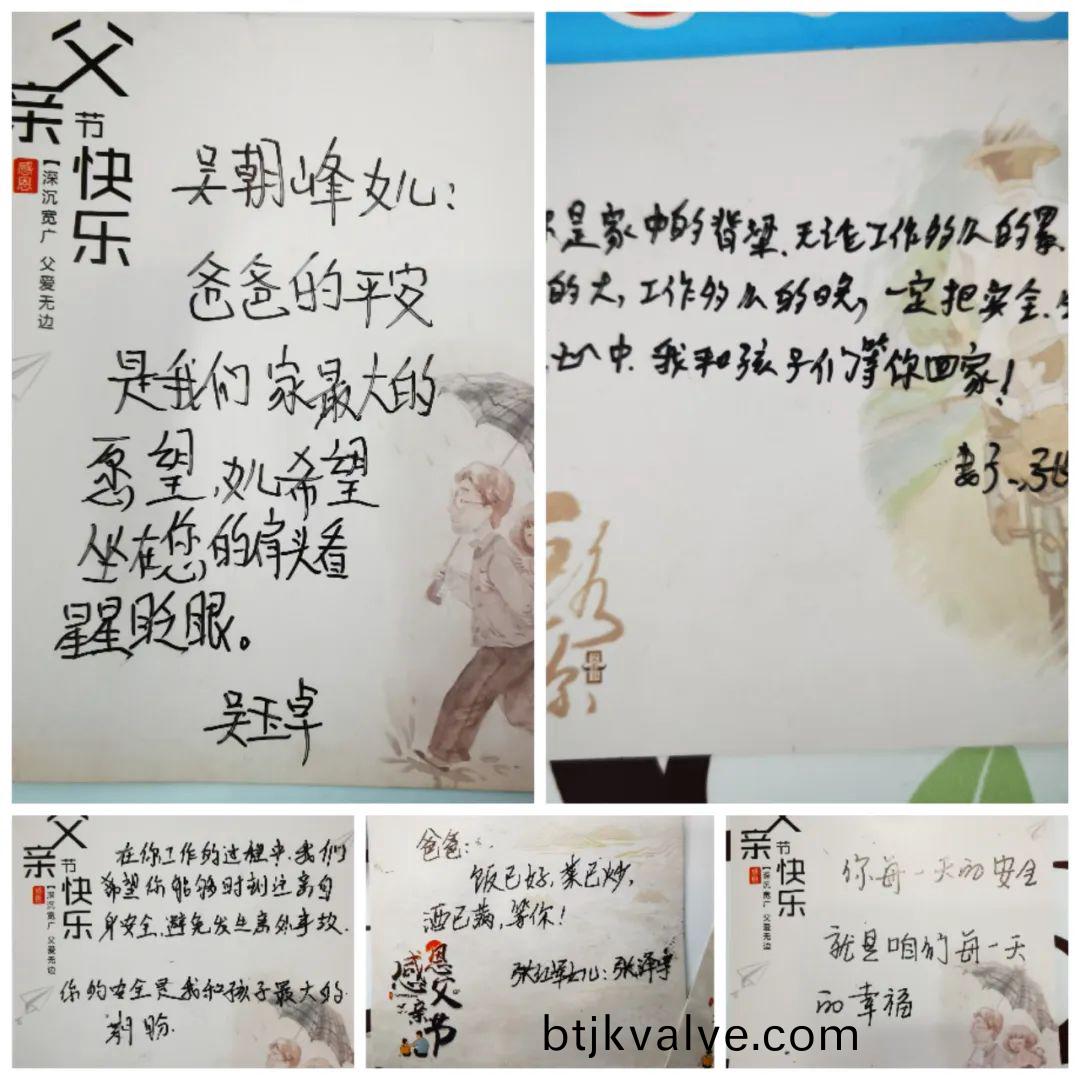 父亲节快乐
感恩
【深沉宽广 父爱无边
吴朝峰女儿：
爸爸的平安
是我们家最大的
愿望,女儿希望
坐在您的肩头看
星星眨眼。
吴玉卓
是家中的背梁,无论工作的多么的累、
的大,工作的多么的晚,一定把安全、
中.我和孩子们等你回家!
妻子
父亲节快乐
感恩
【深沉宽广 父爱无边
在你工作的过程中,我们
希望你能够时刻注意自
身安全,避免发生意外事故.
你的安全是我和孩子最大的
期盼.
爸爸:
饭已好,菜已炒,
酒已满,等你!
女儿:张泽宇
感恩父亲节
父亲节快乐
感恩
【深沉宽广 父爱无边
你每一天的安全
就是咱们每一天
的幸福
btjkvalve.com